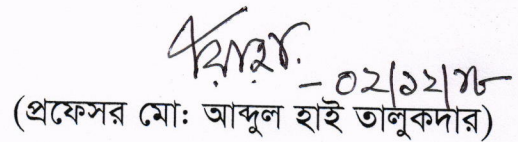 ০২/১২/১৮
(প্রফেসর মো: আব্দুল হাই তালুকদার)